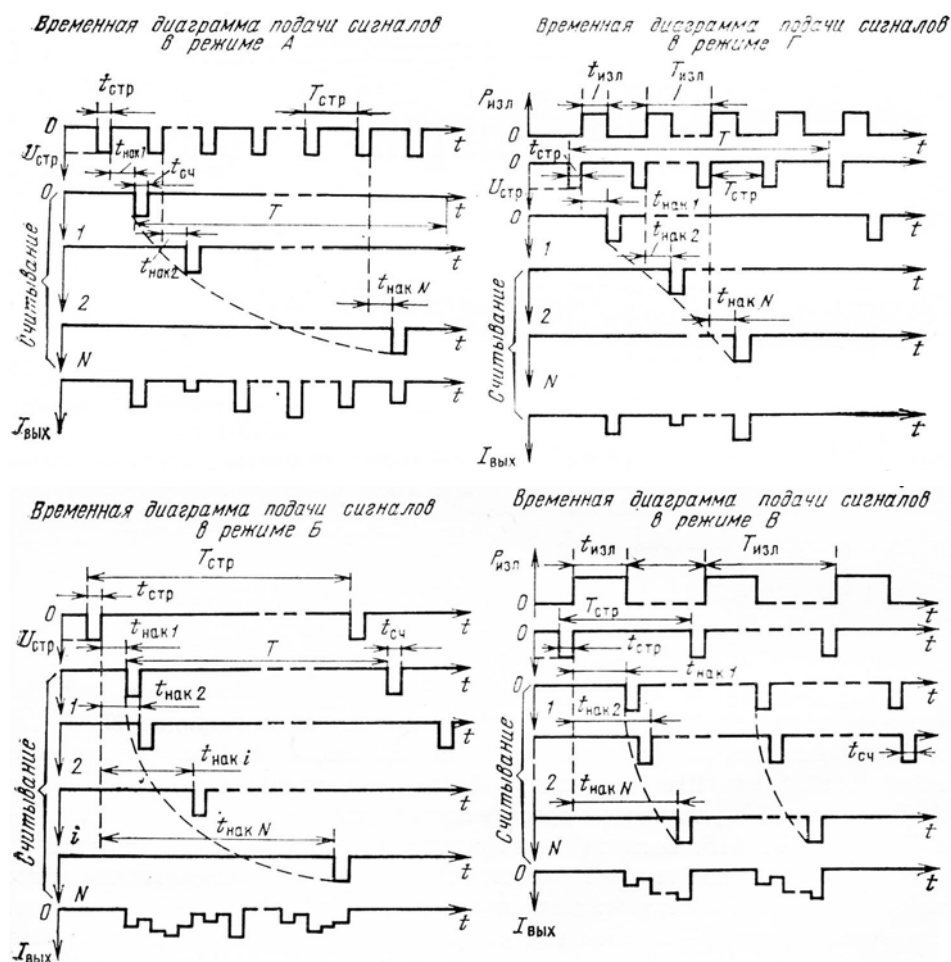 Временная диаграмма подачи сигналов
в режиме А
tстр
Tстр
0
t
Uстр
tнак1
tсч
0
t
T
1
tнак2
t
2
tнак N
t
N
t
Iвых
Считывание
Временная диаграмма подачи сигналов
в режиме Г
tизл
Tизл
Pизл
0
t
T
tстр
0
Uстр
Tстр
t
tнак1
0
t
1
tнак2
t
2
tнак N
t
N
t
Iвых
Считывание
Временная диаграмма подачи сигналов
в режиме Б
Tстр
tстр
0
t
Uстр
tнак1
tсч
T
0
t
1
tнак2
t
2
tнак i
t
i
tнак N
t
N
0
t
Iвых
Считывание
Временная диаграмма подачи сигналов
в режиме В
tизл
Tизл
Pизл
0
t
Tстр
0
t
tстр
tнак1
0
t
1
tнак2
t
tсч
2
tнак N
t
N
0
t
Iвых
Считывание